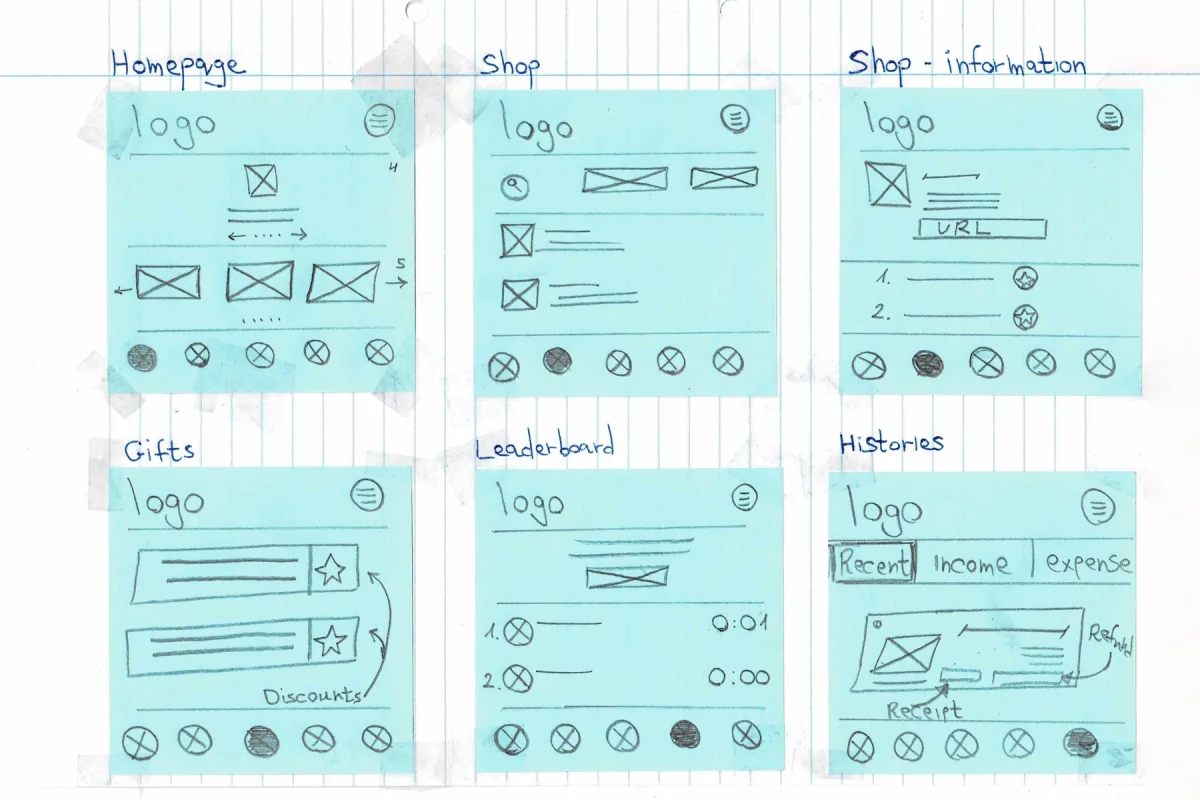 Homepage
logo
4
5
Shop
logo
Shop - information
logo
URL
1.
2.
Gifts
logo
Discounts
Leaderboard
logo
1. 0:01
2. 0:00
Histories
logo
Recent Income expense
Refund
Receipt